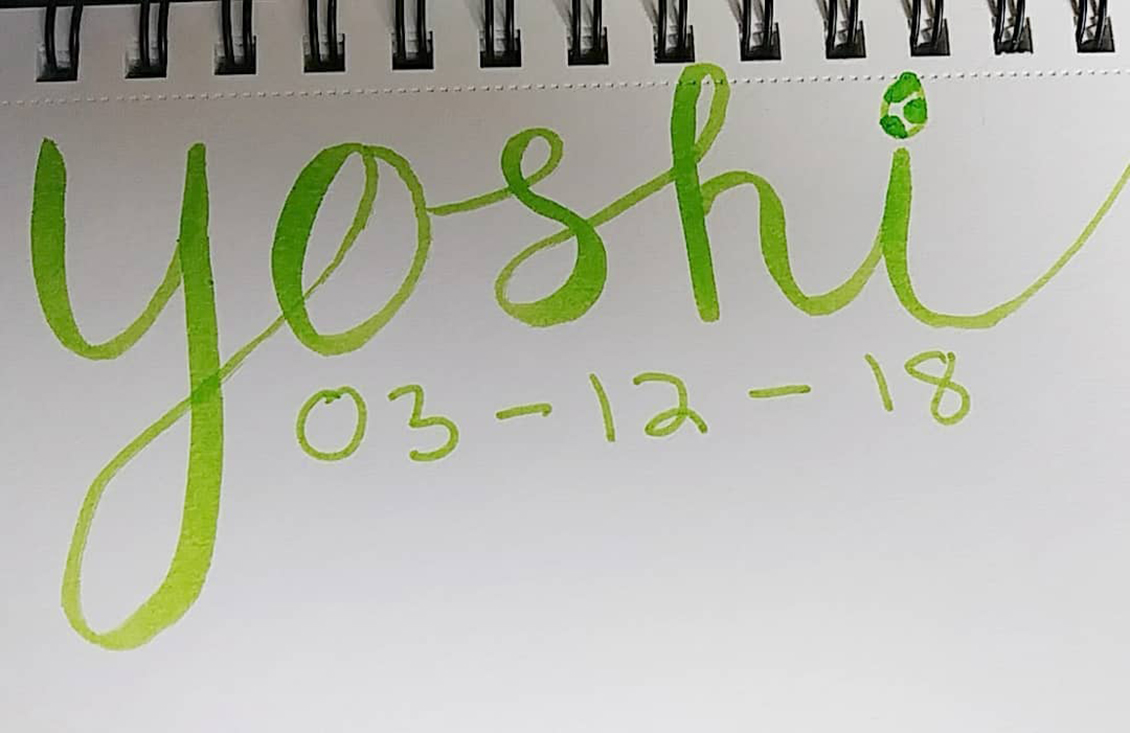 yoshi
03-12-18